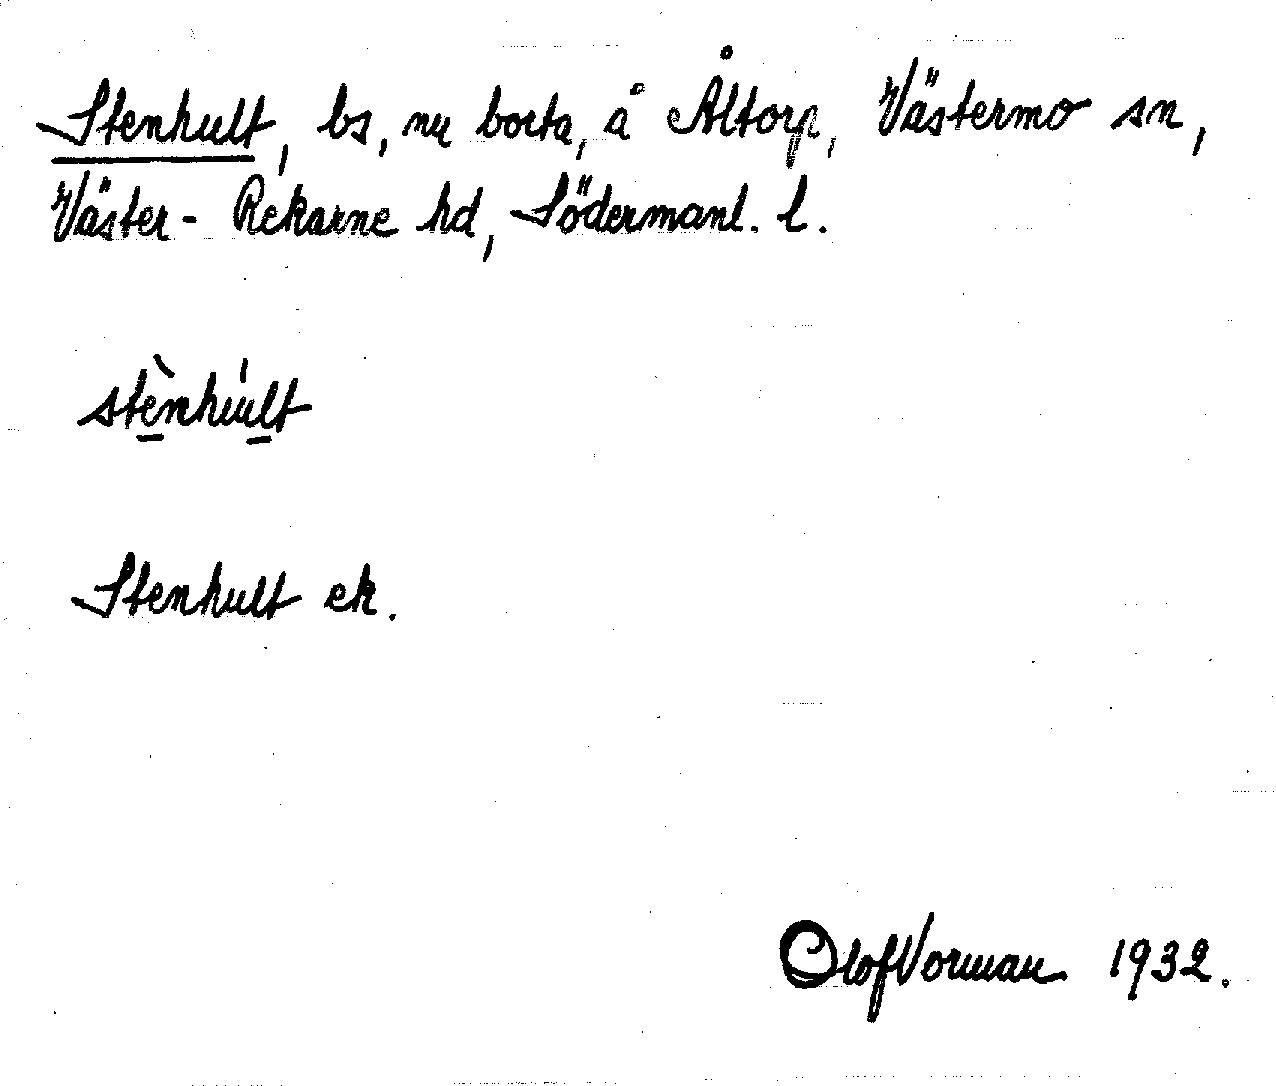 Stenhult, bs, nu borta, å Åltorp, Västermo sn,
Väster-Rekarne hd, Södermanl. l.
stènhúlt
Stenhult ek.
Olof Vorman 1932.